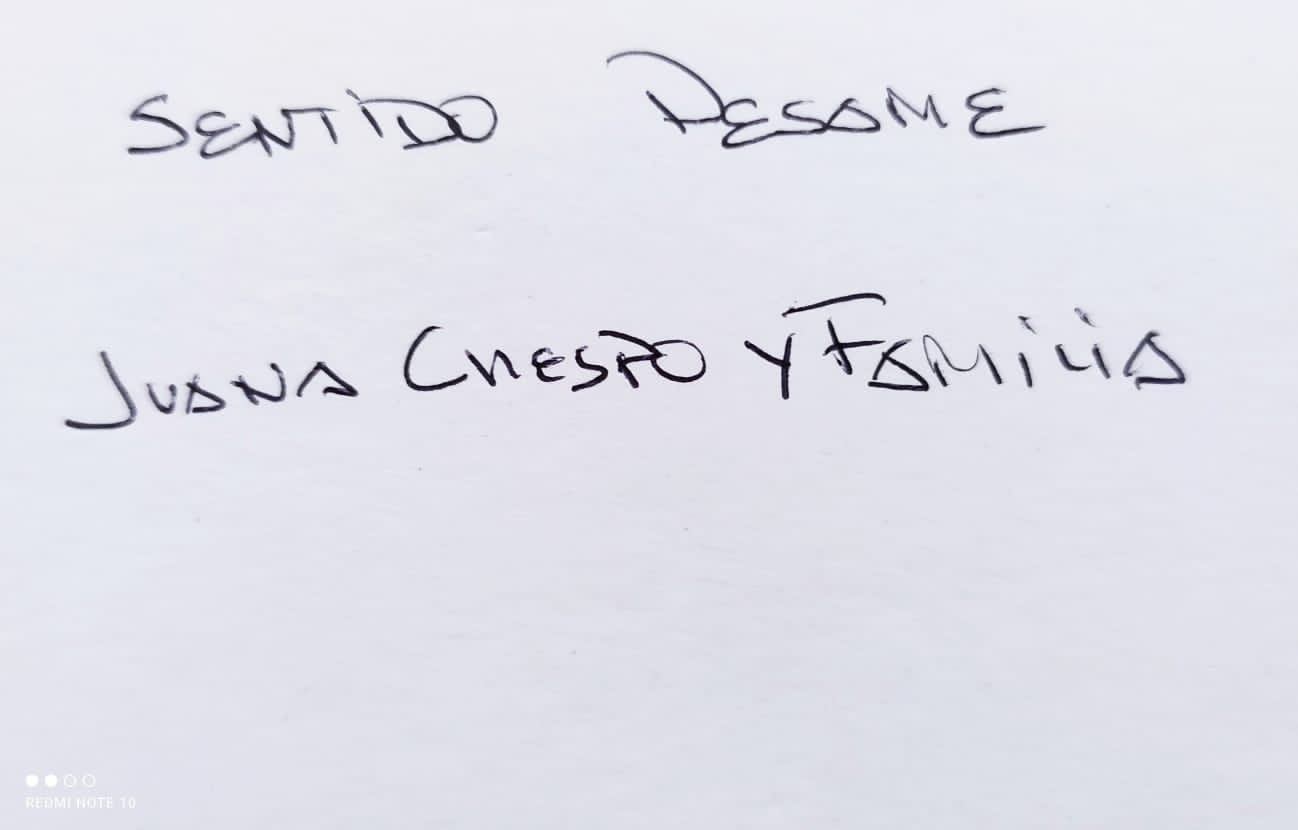 SENTIDO PESAME
JUANA CRESPO Y FAMILIA
REDMI NOTE 10